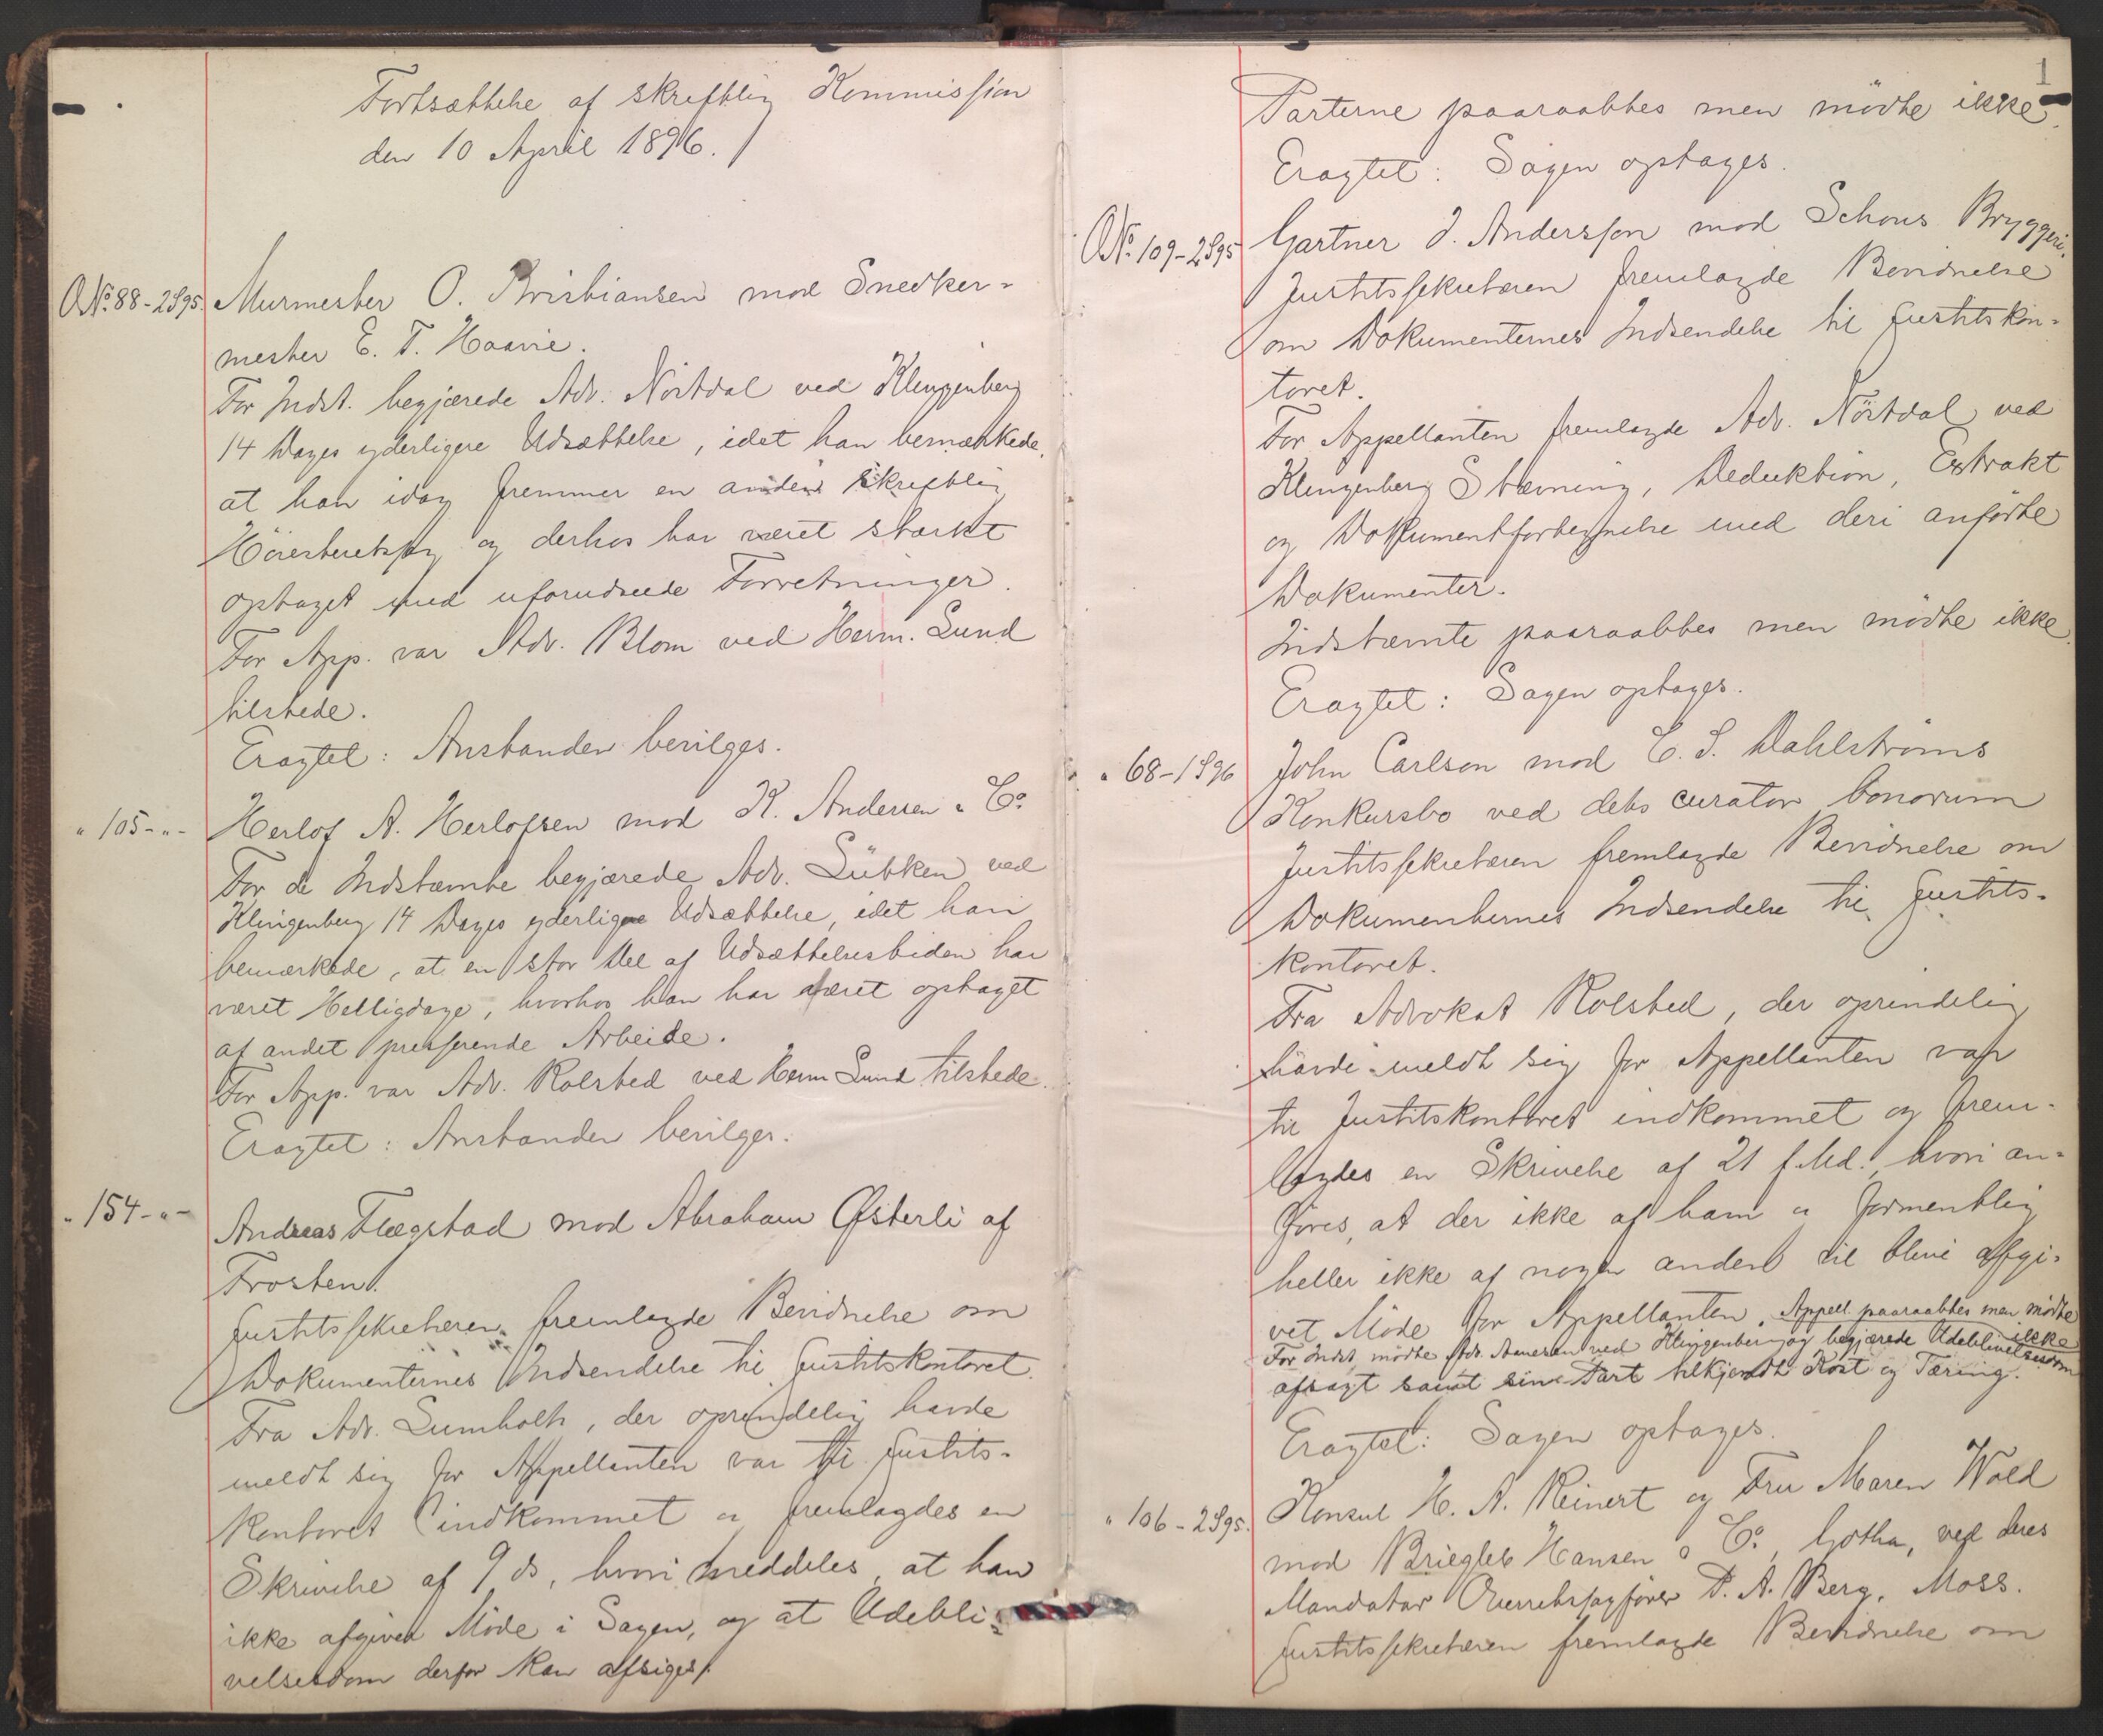 Fortsættelse af skriftlig Kommission
den 10 April 1896.
O№ 88-2S95. Murmester O. Kristiansen mod Snedker-
mester E. T. Haavie.
For Indst. begjærede Adv. Nörtdal ved Klingenberg
14 Dages yderligere Udsættelse, idet han bemærkede,
at han idag fremmer en anden skriftlig
Höiesteretssag og derhos har været stærkt
optaget med uforudseede Forretninger.
For App. var Adv. Blom ved Herm. Lund
tilstede.
Eragtet: Anstanden bevilges.
" 105-"- Herlof A. Herlofsen mod K. Andersen & Co.
For de Indstævnte begjærede Adv. Lübken ved
Klingenberg 14 Dages yderligere Udsættelse, idet han
bemærkede, at en stor Del af Udsættelsestiden har
været Helligdage, hvorhos han har været optaget
af andet presserende Arbeide.
For App. var Adv. Kolsted ved Herm Lund tilstede.
Eragtet: Anstanden bevilges.
" 154-"- Andreas Flægstad mod Abraham Østerli af
Frosten.
Justitssekretæren fremlagde Bevidnelse om
Dokumenternes Indsendelse til Justitskontoret.
Fra Adv. Lumholtz, der oprindelig havde
meldt sig for Appellanten var til Justits-
kontoret indkommet og fremlagdes en
Skrivelse af 9 ds, hvori meddeles, at han
ikke afgiver Möde i Sagen, og at Udebli-
velsesdom derfor kan afsiges.
1
Parterne paaraabtes men mödte ikke.
Eragtet: Sagen optages.
O№ 109-2S95 Gartner J. Anderssen mod Schous Bryggeri.
Justitssekretæren fremlagde Bevidnelse
om Dokumenternes Indsendelse til Justitskon-
toret.
For Appellanten fremlagde Adv. Nörtdal ved
Klingenberg Stævning, Deduktion, Extrakt
og Dokumentfortegnelse med deri anförte
Dokumenter.
Indstævnte paaraabtes men mödte ikke.
Eragtet: Sagen optages.
" 68-1S96 John Carlson mod C. S. Dahlströms
Konkursbo ved dets curator bonorum
Justitssekretæren fremlagde Bevidnelse om
Dokumenternes Indsendelse til Justits-
kontoret.
Fra Advokat Kolsted, der oprindelig
havde meldt sig for Appellanten var
til Justitskontoret indkommet og frem-
lagdes en Skrivelse af 21 f. Md., hvori an-
föres, at der ikke af ham og formentlig
heller ikke af nogen anden vil blive afgi-
vet Möde for Appellanten. Appell. paaraabtes men mödte ikke
For Indst. mödte Adv. ved Klingenberg og begjærede Udeblivelsesdom
afsagt samt sin Part tilkjendt Kost og Tæring.
Eragtet: Sagen optages.
" 106-2S95. Konsul H. A. Reinert og Fru Maren Wold
mod Briegleb Hansen & Co, Gotha, ved deres
Mandatar Overretssagförer P. A. Berg, Moss.
Justitssekretæren fremlagde Bevidnelse om